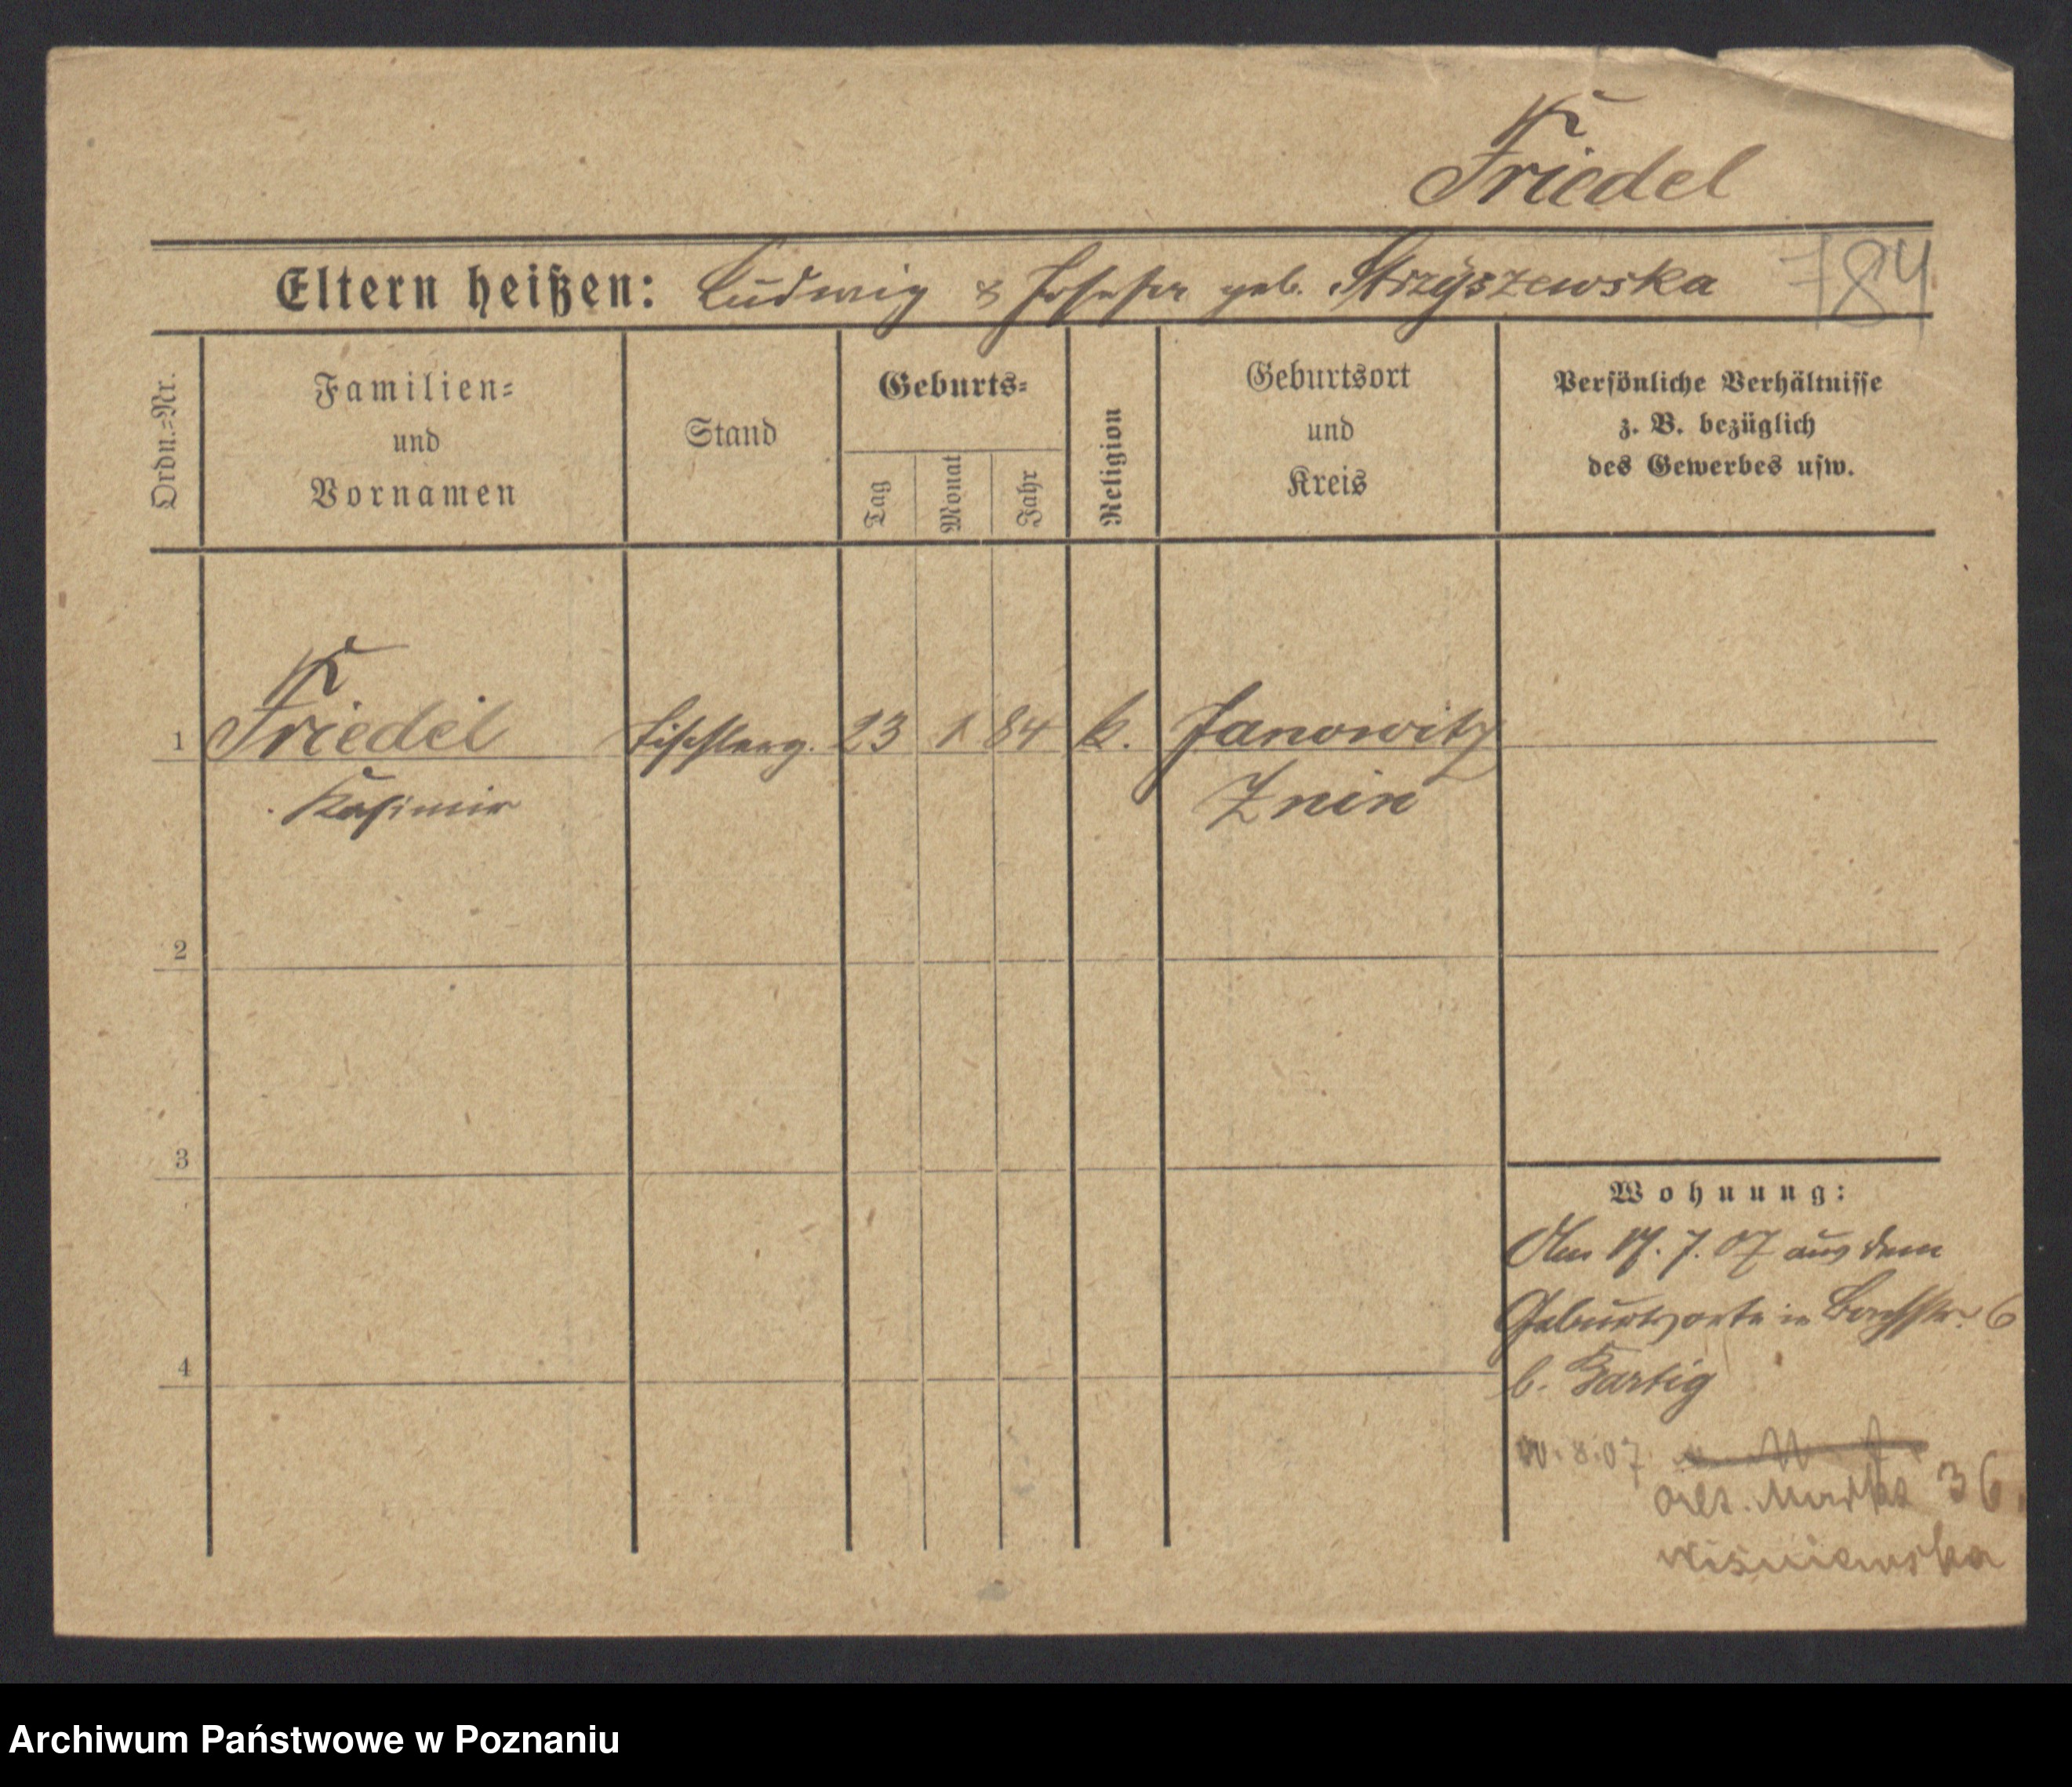 Friedel
Eltern heißen: Ludwig & Josefa geb. Strzyszewska 784
Ordn.=Nr.
Familien=
und
Vornamen
Stand
Geburts=
Tag
Monat
Jahr
Religion
Geburtsort
und
Kreis
Persönliche Verhältnisse
z. B. bezüglich
des Gewerbes usw.
1 Friedel Tischlerg. 23 1 84 k. Janowitz
Kasimir Znin
2
3
4
Wohnung:
Am 17. 7. 07 aus dem
Geburtsorte in 6
b. Hartig
8.07
Alt. Markt 36
Wiśniewska
Archiwum Państwowe w Poznaniu